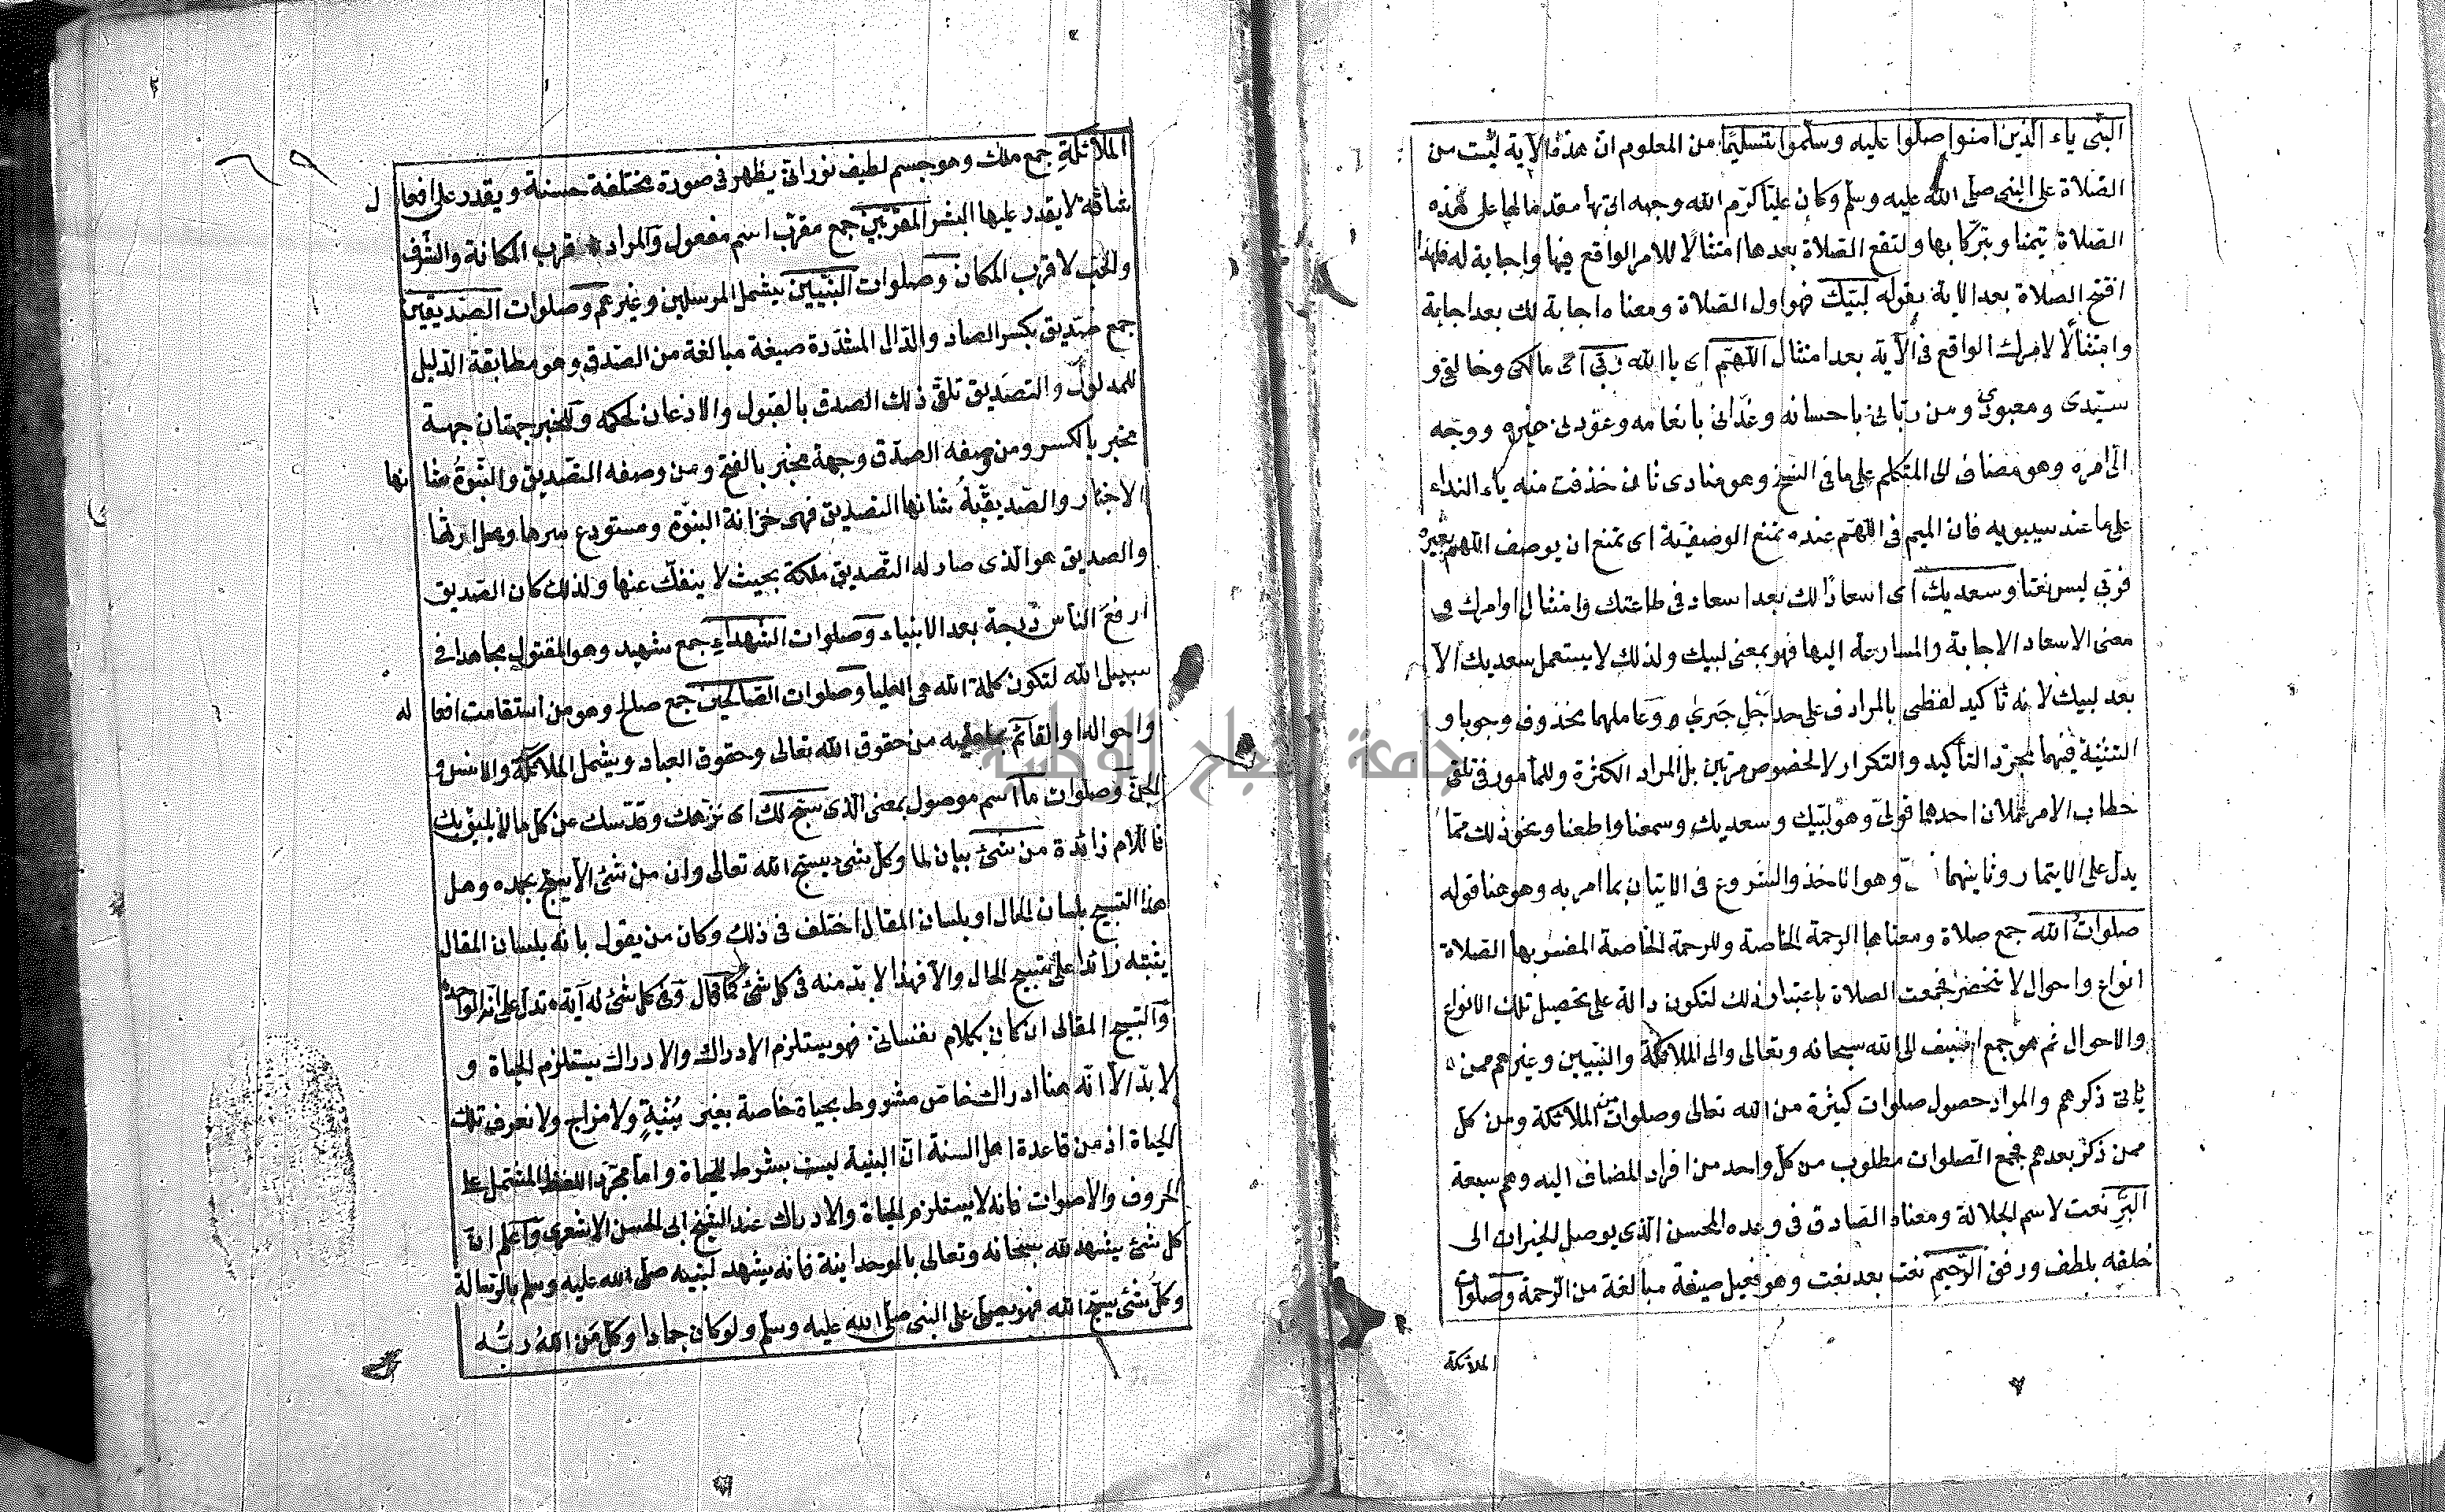 النبى ياء الذين امنوا صلوا عليه وسلموا تسليما من المعلوم ان هذه الآية ليست من
الصلاة على النبى صلى الله عليه وسلم وكان عليا كرم الله وجهه اتى بها مقدما لها على هذه
الصلاة تيمنا وتبركا بها ولتقع الصلاة بعدها امتثالا للامر الواقع فيها واجابة له فلهذا
افتتح الصلاة بعد الاية بقوله لبيك فهو اول الصلاة ومعناه اجابة لك بعد اجابة
وامتثالا لامرك الواقع فى الآية بعد امتثال اللهم اى يا الله ربى اى مالكى وخالقى و
سيدى ومعبودى ومن ربانى باحسانه وغذانى بانعامه وعودنى خيره ووجه
الى امره وهو مضاف الى المتكلم على ما فى النسخ وهو منادى ثان حذفت منه ياء النداء
على ما عند سيبويه فان الميم فى اللهم عنده تمنع الوصفية اى تمنع ان يوصف اللهم بغيره
فربى ليس نعتا وسعديك اى اسعادا لك بعد اسعاد فى طاعتك وامتثال اوامرك فى
معنى الاسعاد الاجابة والمسارعة اليها فهو بمعنى لبيك ولذلك لا يستعمل سعديك الا
بعد لبيك لانه تأكيد لفظى بالمرادف على حد اجل جير وعاملهما محذوف وجوبا و
التثنية فيهما لمجرد التأكيد والتكرار لا لخصوص مرتين بل المراد الكثرة وللمأمور فى تلقى
خطاب الامر عملان احدهما قولى وهو لبيك وسعديك وسمعنا واطعنا ونحو ذلك مما
يدل على الايتمار وثانيهما وهو الاخذ والشروع فى الاتيان بما امر به وهو هنا قوله
صلوات الله جمع صلاة ومعناها الرحمة الخاصة وللرحمة الخاصة المفسر بها الصلاة
انواع واحوال لا تنحصر فجمعت الصلاة باعتبار ذلك لتكون دالة على تحصيل تلك الانواع
والاحوال ثم هو جمع اضيف الى الله سبحانه وتعالى والى الملائكة والنبيين وغيرهم ممن
يأتى ذكرهم والمراد حصول صلوات كثيرة من الله تعالى وصلوات من الملائكة ومن كل
ممن ذكر بعدهم فجمع الصلوات مطلوب من كل واحد من افراد المضاف اليه وهم سبعة
البر نعت لاسم الجلالة ومعناه الصادق فى وعده المحسن الذى يوصل الخيرات الى
خلقه بلطف ورفق الرحيم نعت بعد نعت وهو فعيل صيغة مبالغة من الرحمة وصلوات
الملائكة
الملائكة جمع ملك وهو جسم لطيف نورانى يظهر فى صورة مختلفة حسنة ويقدر على افعال
شاقة لا يقدر عليها البشر المقربين جمع مقرب اسم مفعول والمراد قرب المكانة والشرف
والحب لا قرب المكان وصلوات النبيين يشمل المرسلين وغيرهم وصلوات الصديقين
جمع صديق بكسر الصاد والدال المشددة صيغة مبالغة من الصدق وهو مطابقة الدليل
للمدلول والتصديق تلقى ذلك الصدق بالقبول والاذعان لحكمه وللخبر جهتان جهة
مخبر بالكسر ومن وصفه الصدق وجهة مخبر بالفتح ومن وصفه التصديق والنبوة شانها
الاخبار والصديقية شانها التصديق فهى خزانة النبوة ومستودع سرها ومحل ارثها
والصديق هو الذى صار له التصديق ملكة بحيث لا ينفك عنها ولذلك كان الصديق
ارفع الناس درجة بعد الانبياء وصلوات الشهداء جمع شهيد وهو المقتول مجاهدا فى
سبيل الله لتكون كلمة الله هى العليا وصلوات الصالحين جمع صالح وهو من استقامت افعاله
واحواله او القائم بما عليه من حقوق الله تعالى وحقوق العباد ويشمل الملائكة والانس و
الجن وصلوات ما اسم موصول بمعنى الذى سبح لك اى نزهك وقدسك عن كل ما لا يليق بك
فاللام زائدة من شئ بيان لما وكل شئ يسبح الله تعالى وان من شئ الا يسبح بحمده وهل
هذا التسبيح بلسان الحال او بلسان المقال اختلف فى ذلك وكان من يقول بانه بلسان المقال
يثبته زائدا على تسبيح الحال والا فهذا لا بد منه فى كل شئ كما قال وفى كل شئ له آية تدل على انه الواحد
والتسبيح المقالى ان كان بكلام نفسانى فهو يستلزم الادراك والادراك يستلزم الحياة و
لا بد الا انه هنا ادراك خاص مشروط بحياة خاصة بغير بنية ولا مزاج ولا نعرف تلك
الحياة اذ من قاعدة اهل السنة ان البنية ليست بشرط للحياة واما مجرد اللفظ المشتمل على
الحروف والاصوات فانه لا يستلزم الحياة والادراك عند الشيخ ابى الحسن الاشعرى واعلم ان
كل شئ يشهد لله سبحانه وتعالى بالوحدانية فانه يشهد لنبيه صلى الله عليه وسلم بالرسالة
وكل شئ يسبح الله فهو يصلى على النبى صلى الله عليه وسلم ولو كان جمادا وكل من الله ربه
جامعة النجاح الوطنية